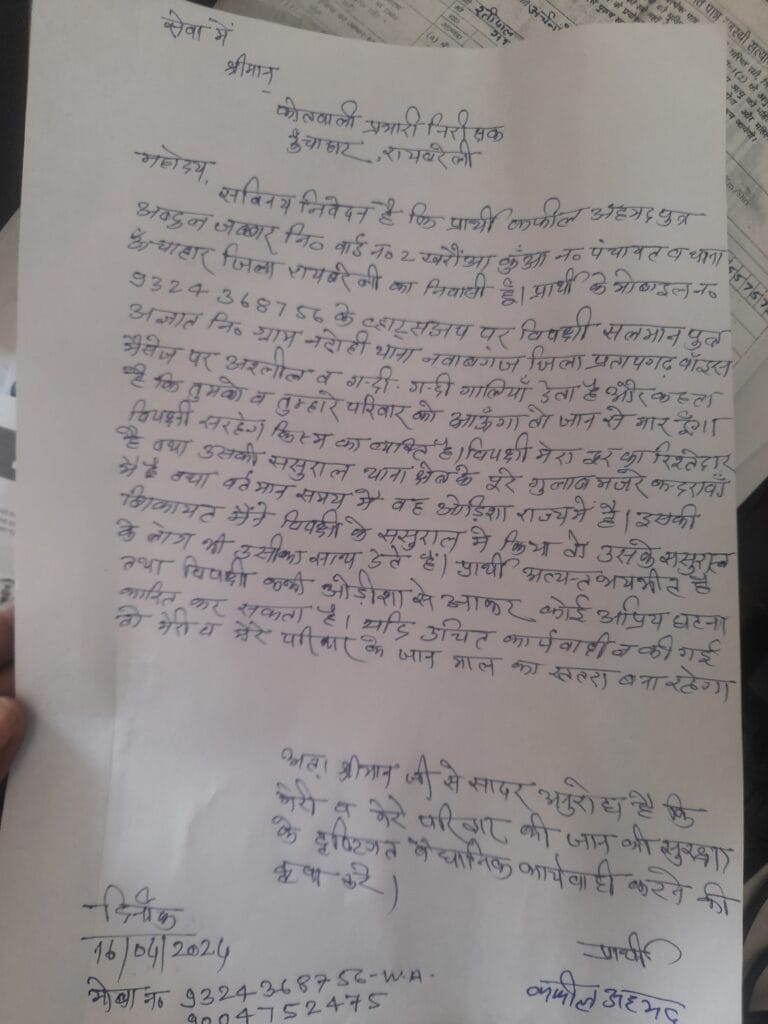 सेवा में
श्रीमान्
कोतवाली प्रभारी निरीक्षक
ऊँचाहार, रायबरेली
महोदय,
सविनय निवेदन है कि प्रार्थी कफील अहमद पुत्र
अब्दुल जब्बार नि० वार्ड न० 2 खरौआ कुँआ न० पंचायत व थाना
ऊँचाहार जिला रायबरेली का निवासी हूँ। प्रार्थी के मोबाइल न०
9324368756 के व्हाट्सअप पर विपक्षी सलमान पुत्र
अज्ञात नि० ग्राम नरोही थाना नवाबगंज जिला प्रतापगढ़ वॉइस
मैसेज पर अश्लील व गन्दी-गन्दी गालियाँ देता है और कहता
है कि तुमको व तुम्हारे परिवार को आऊँगा तो जान से मार दूँगा।
विपक्षी सरहंग किस्म का व्यक्ति है। विपक्षी मेरा दूर का रिश्तेदार
है तथा उसकी ससुराल थाना क्षेत्र के पूरे गुलाब मजरे कन्दरावाँ
में है तथा वर्तमान समय में वह ओड़िशा राज्य में है। इसकी
शिकायत मैंने विपक्षी के ससुराल में किया तो उसके ससुराल
के लोग भी उसी का साथ देते हैं। प्रार्थी अत्यन्त भयभीत है
तथा विपक्षी कभी ओड़ीशा से आकर कोई अप्रिय घटना
कारित कर सकता है। यदि उचित कार्यवाही न की गई
तो मेरी व मेरे परिवार के जान माल का खतरा बना रहेगा
अतः श्रीमान जी से सादर अनुरोध है कि
मेरी व मेरे परिवार की जान की सुरक्षा
के दृष्टिगत वैधानिक कार्यवाही करने की
कृपा करें।
दिनाँक
16/04/2024
प्रार्थी
मोबा न० 9324368756-W.A.
कफील अहमद
9004752475